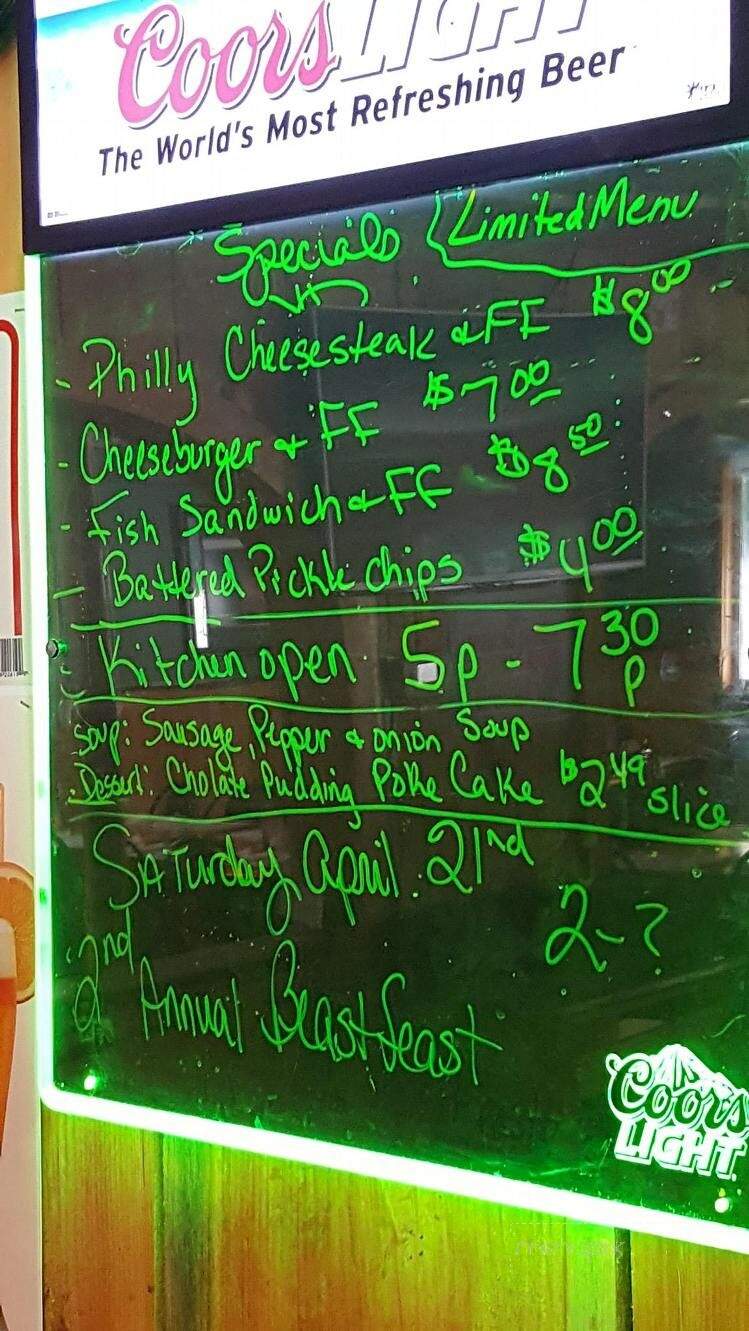 Coors LIGHT
The World's Most Refreshing Beer
Specials Limited Menu
- Philly Cheesesteak & FF $8 00
- Cheeseburger & FF $7 00
- Fish Sandwich & FF $8 50
- Battered Pickle chips $4 00
Kitchen open 5p - 7 30 p
Soup: Sausage, Pepper & onion Soup
Dessert: Cholate Pudding Poke Cake $2 49 slice
Saturday April 21nd
2-?
2nd Annual Beastfeast
Coors
LIGHT